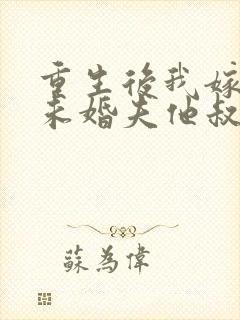 重生後我嫁
未婚夫他叔
蘇為偉